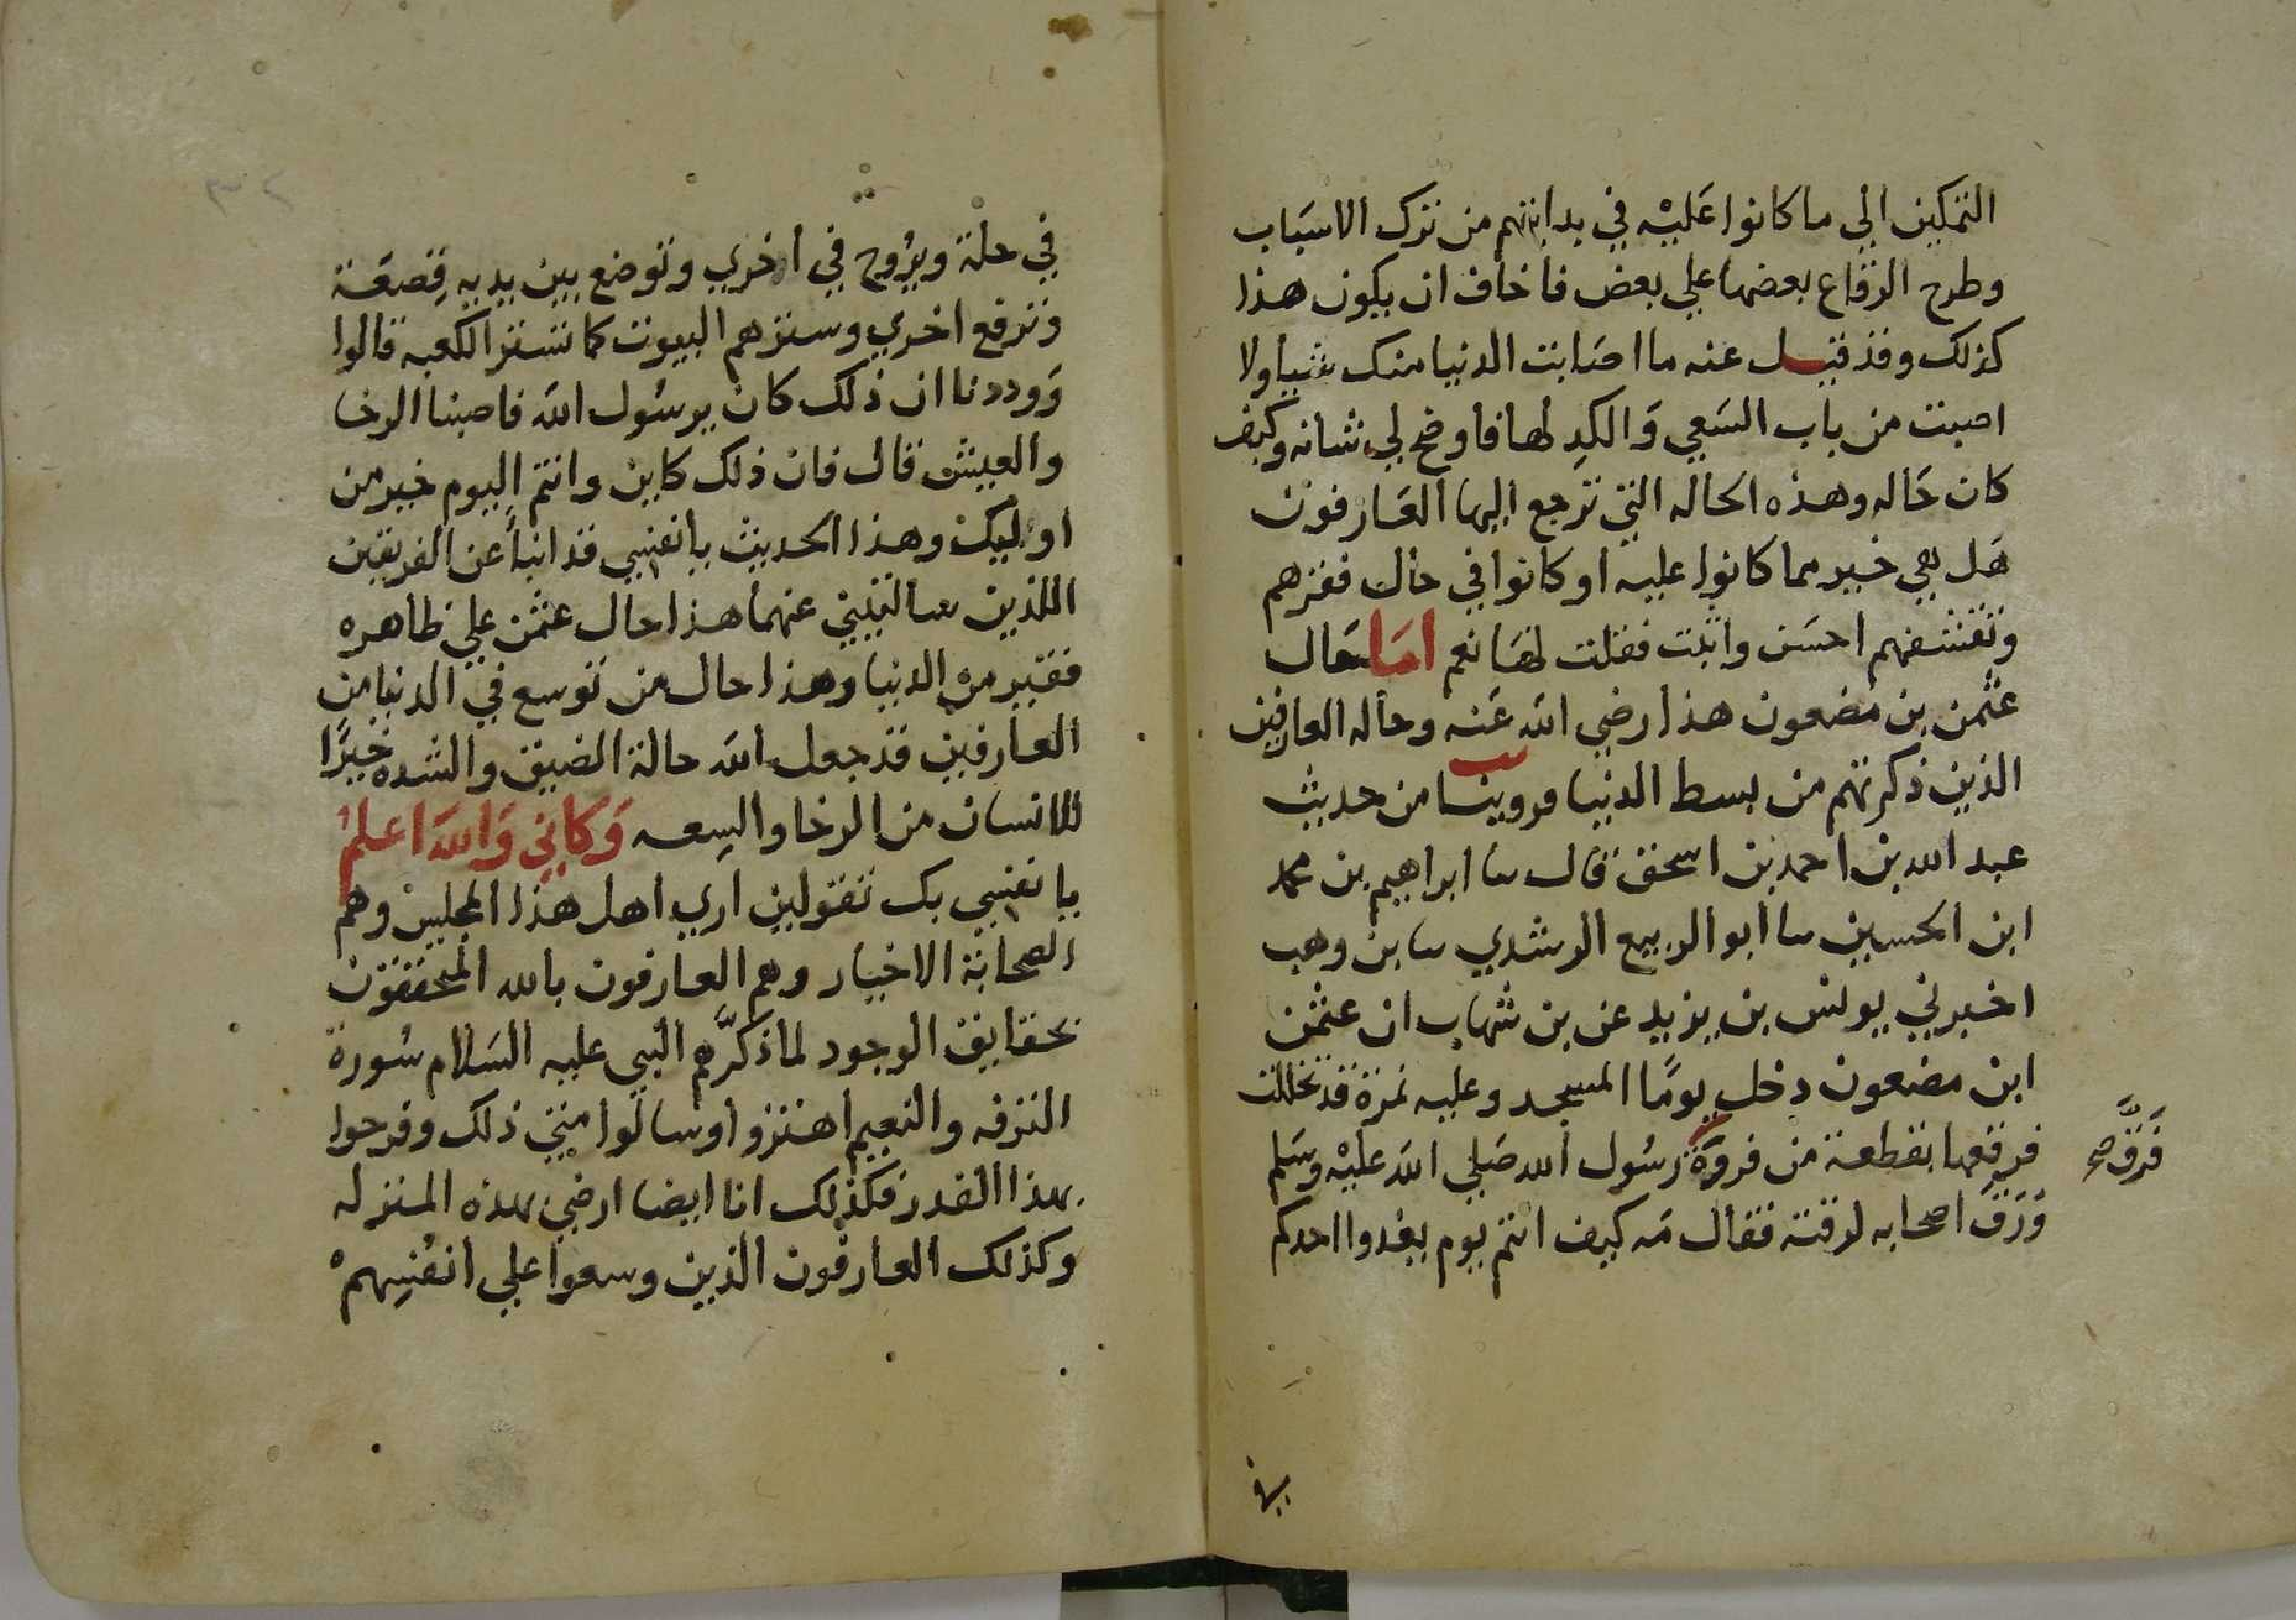 التمكين الي ما كانوا عَليْه في بدايتهم من ترك الاسبَاب
وطرح الرقاع بعضها علي بعض فاخاف ان يكون هذا
كذلك وقد قيل عنه ما اصَابت الدنيا منك شيا ولا
اصبت من باب السَعي وَالكدِ لها فاوضح لي شانه وكيف
كان حَاله وهذه الحاله التي ترجع اليها العَارفون
هَل هي خير مما كانوا عليه او كانوا في حال فقرهم
وتقشفهم احسَن واثبت فقلت لهَا نعم امَا حَال
عثمن بن مضعون هذا رضي الله عَنه وحاله العارفين
الذين ذكرتهم من بسط الدنيا فروينا من حديث
عبد الله بن احمد بن اسحق قال سا ابراهيم بن محمد
ابن الحسين سا ابو الربيع الرشدي سا بن وهب
اخبرني يونس بن يزيد عن بن شهاب ان عثمن
ابن مضعون دخل يومًا المسجد وعليه نمرة قد تخللت
فرقعها بقطعة من فروة رسُول الله صَلي الله عليْه وسَلم
فَرَقَّ صح
وَرَقَ اصحابه لرقته فقال مَه كيف انتم يوم يغدوا احدكم
في
في حلة ويرُوح في اخري وتوضع بين يديه قِصعَة
وترفع اخري وسترهم البيوت كما تستر الكعبه قالوا
وَوددنا ان ذلك كان يرسُول الله فاصبنا الرخا
والعيش قال فان ذلك كاين وانتم اليوم خير من
اوليك وهذا الحديث يا نفسي قد انبأ عن الفريقين
اللذين سالتيني عنهما هذا حال عثمن علي ظاهره
فقير من الدنيا وهذا حال من توسع في الدنيا من
العارفين قد جعل الله حالة الضيق والشده خيرًا
للانسان من الرخا والسِعه وَكاني وَالله اعلمُ
يا نفسي بك تقولين اري اهل هذا المجلس وهم
الصحابة الاخيار وهم العارفون بالله المتحققون
بحقايق الوجود لما ذكرَّهم النبي عليه السَلام سُورة
الترفه والنعيم اهتزو اوسالوا متي ذلك وفرحوا
بهذا القدر فكذلك انا ايضا ارضي بهذه المنزله
وكذلك العارفون الذين وسعوا علي انفُسِهمْ